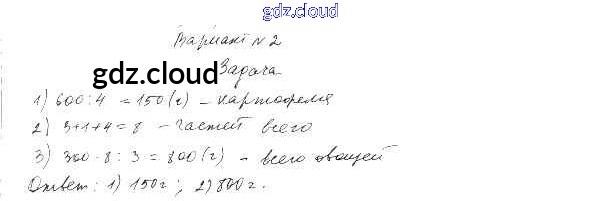 gdz.cloud
Вариант №2
gdz.cloud
Задача
1) 600:4 = 150 (г) - картофеля
2) 3+1+4=8 - частей всего
3) 300·8:3=800(г) - всего овощей
Ответ: 1) 150г; 2) 800г.